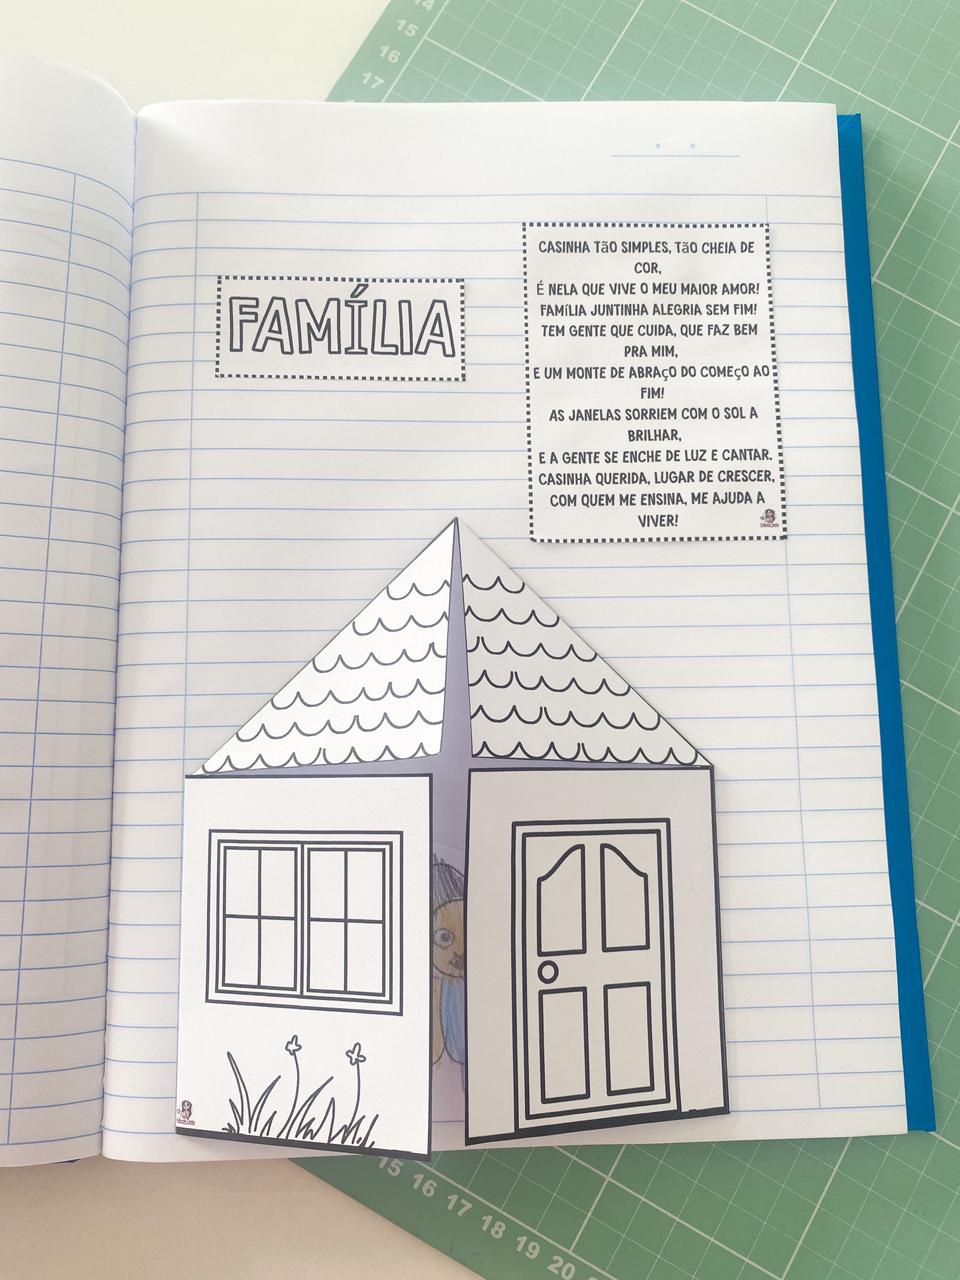 14
15
16
17
FAMÍLIA
CASINHA TãO SIMPLES, TãO CHEIA DE
COR,
É NELA QUE VIVE O MEU MAIOR AMOR!
FAMíLIA JUNTINHA ALEGRIA SEM FIM!
TEM GENTE QUE CUIDA, QUE FAZ BEM
PRA MIM,
E UM MONTE DE ABRAçO DO COMEçO AO
FIM!
AS JANELAS SORRIEM COM O SOL A
BRILHAR,
E A GENTE SE ENCHE DE LUZ E CANTAR.
CASINHA QUERIDA, LUGAR DE CRESCER,
COM QUEM ME ENSINA, ME AJUDA A
VIVER!
15
16
17
18
19
20